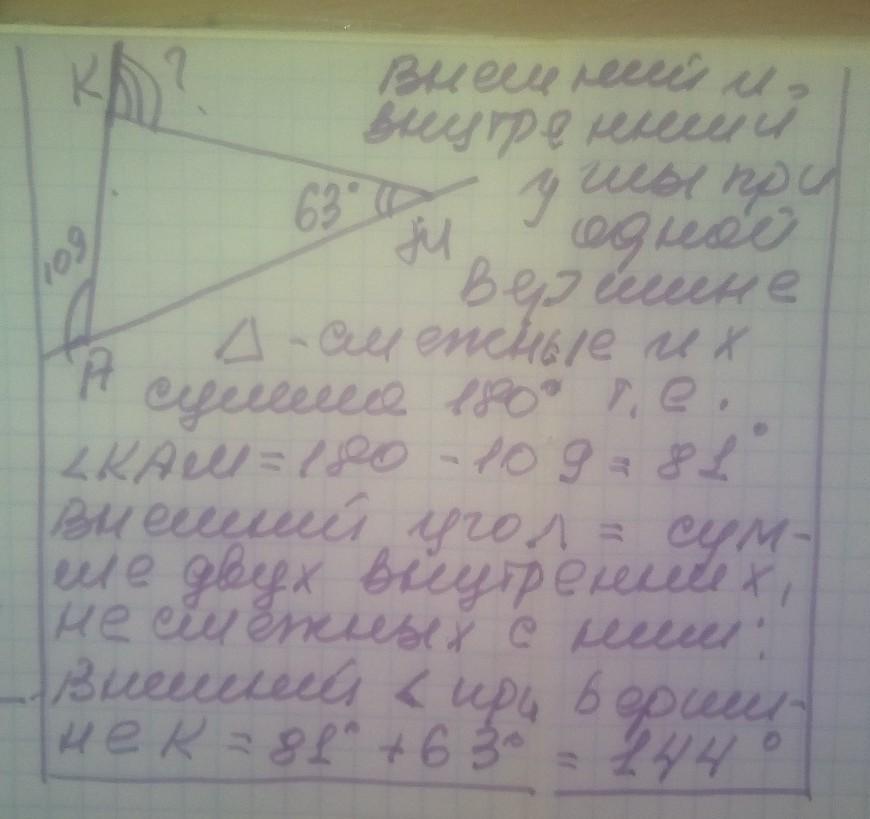 K ?
Внешний и
внутренний
63° углы при
М одной
109 вершине
А
Δ - смежные их
сумма 180° т.е.
∠КАМ = 180 - 109 = 81°
Внешний угол = сум-
ме двух внутренних,
не смежных с ним:
Внешний ∠ при верши-
не К = 81° + 63° = 144°